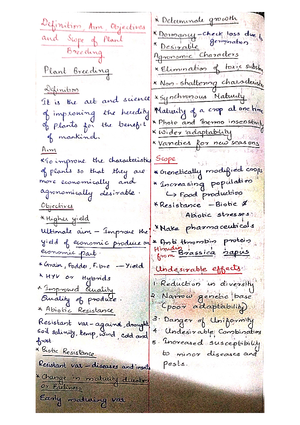 Definition Aim Objectives
and Scope of Plant
Breeding
Plant Breeding
Definition
It is the art and science
of improving the heredity
of plants for the benefit
of mankind.
Aim
* To improve the characteristics
of plants so that they are
more economically and
agronomically desirable.
Objectives
* Higher yield
Ultimate aim - Improve the
yield of economic produce or
economic part.
* Grain, Fodder, Fibre - Yield
* HYV or Hybrids
* Improved Quality
Quality of produce
* Abiotic Resistance
Resistant var - against drought,
Soil salinity, temp, wind, cold and
frost
* Biotic Resistance
Resistant var - diseases and insects
* Change in maturity duration
Early maturing var.
* Determinate growth
* Dormancy - check loss due to
germination
* Desirable
Agronomic Characters
* Elimination of toxic
* Non-shattering characteristics
* Synchronous Maturity
Maturity of a crop at one time
* Photo and thermo insensitivity
* Wider adaptability
* Varieties for new seasons
Scope
* Genetically modified crops
* Increasing population
↳ Food production
* Resistance - Biotic &
Abiotic stresses
* Make pharmaceuticals
* Anti thrombin protein
Hirudin
from Brassica napus
Undesirable effects
1. Reduction in diversity
2. Narrow genetic base
(poor adaptability)
3. Danger of Uniformity
4. Undesirable Combinations
5. Increased susceptibility
to minor diseases and
pests.